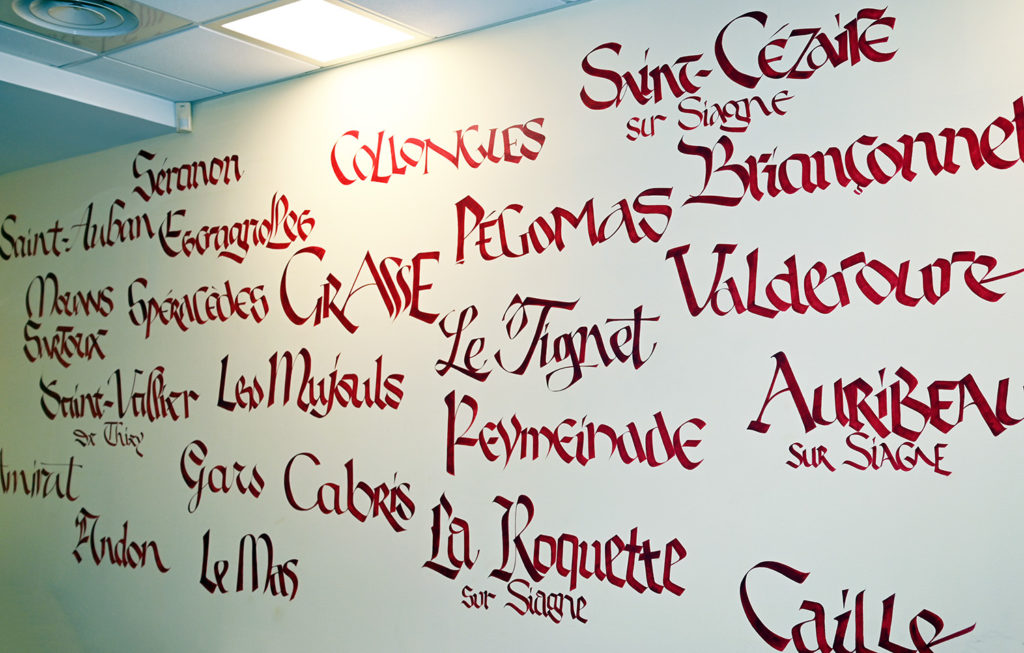 Saint-Cézaire
sur Siagne
Collongues
Briançonnet
Séranon
Saint-Auban
Escragnolles
Pégomas
Valderoure
Mouans
Sartoux
Spéracèdes
GRASSE
Le Tignet
Saint-Vallier
de Thiey
Les Mujouls
AURIBEAU
sur SIAGNE
Peymeinade
Amirat
Gars
Cabris
Andon
Le Mas
La Roquette
sur Siagne
Caille